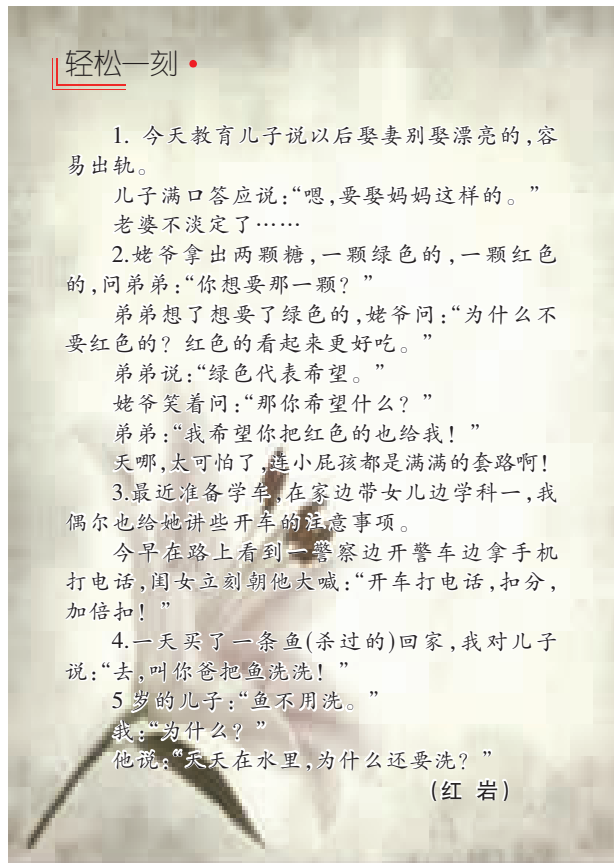 轻松一刻
1. 今天教育儿子说以后娶妻别娶漂亮的,容
易出轨。
儿子满口答应说:“嗯,要娶妈妈这样的。”
老婆不淡定了……
2.姥爷拿出两颗糖,一颗绿色的,一颗红色
的,问弟弟:“你想要那一颗?”
弟弟想了想要了绿色的,姥爷问:“为什么不
要红色的?红色的看起来更好吃。”
弟弟说:“绿色代表希望。”
姥爷笑着问:“那你希望什么?”
弟弟:“我希望你把红色的也给我!”
天哪,太可怕了,连小屁孩都是满满的套路啊!
3.最近准备学车,在家边带女儿边学科一,我
偶尔也给她讲些开车的注意事项。
今早在路上看到一警察边开警车边拿手机
打电话,闺女立刻朝他大喊:“开车打电话,扣分,
加倍扣!”
4.一天买了一条鱼(杀过的)回家,我对儿子
说:“去,叫你爸把鱼洗洗!”
5岁的儿子:“鱼不用洗。”
我:“为什么?”
他说:“天天在水里,为什么还要洗?”
(红 岩)